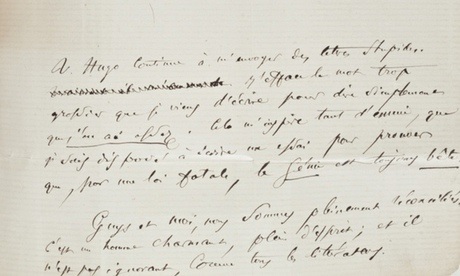 V. Hugo continue à m'envoyer des lettres stupides.
j'efface le mot trop
grossier que je viens d'écrire pour dire simplement
que j'en ai assez. Cela m'inspire tant d'ennui, que
je suis disposé à écrire un essai pour prouver
que, par une loi fatale, le Génie est toujours bête.
Guys et moi, nous sommes pleinement réconciliés.
c'est un homme charmant, plein d'esprit; et il
n'est pas ignorant, comme tous les littérateurs.